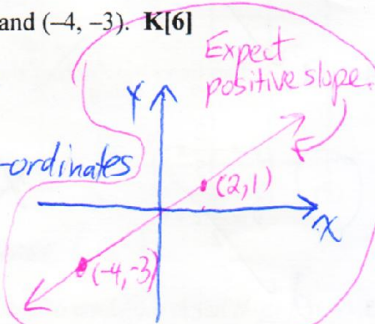 and (–4, –3). K[6]
Expect
positive slope.
Y
-ordinates
(2,1)
X
(-4,-3)